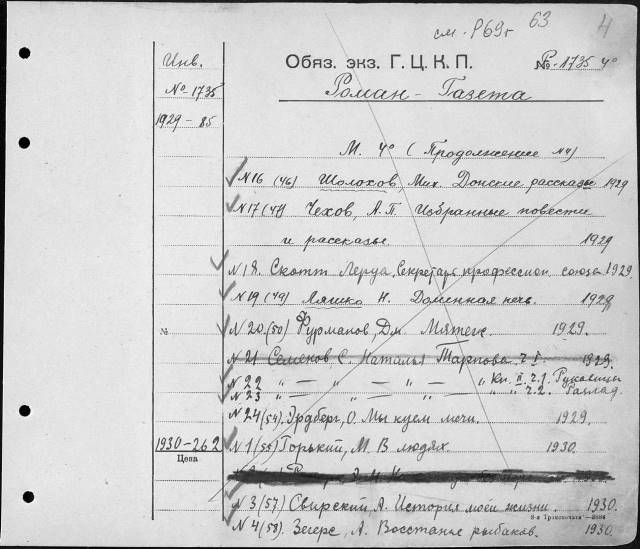 см. Р69г 63 4
Инв.
№-1735
1929-85
Обяз. экз. Г. Ц. К. П. № Р-1735 4°
Роман-Газета
М. 4° (Продолжение №4)
N16 (46) Шолохов, Мих. Донские рассказы 1929
N17 (47) Чехов, А.П. Избранные повести
и рассказы. 1929
N18. Скотт Леруа, Секретарь профессион. союза 1929.
N19 (49) Ляшко Н. Доменная печь. 1929
№ N20 (50) Фурманов, Дм. Мятеж 1929.
N21 Семенов, С. Наталья Тарпова. ч I. 1929.
N22 " — " — " — " — " Кн. II. ч.1. Рукавицы
N23 " — " — " — " — " ч.2. Разлад
N24 (54) Эрдберг, О. Мы куем мечи. 1929.
1930-262
Цена
N1 (55) Горький, М. В людях. 1930.
N3 (57) Свирский А. История моей жизни. 1930.
N4 (58). Зегерс, А. Восстанье рыбаков. 1930.